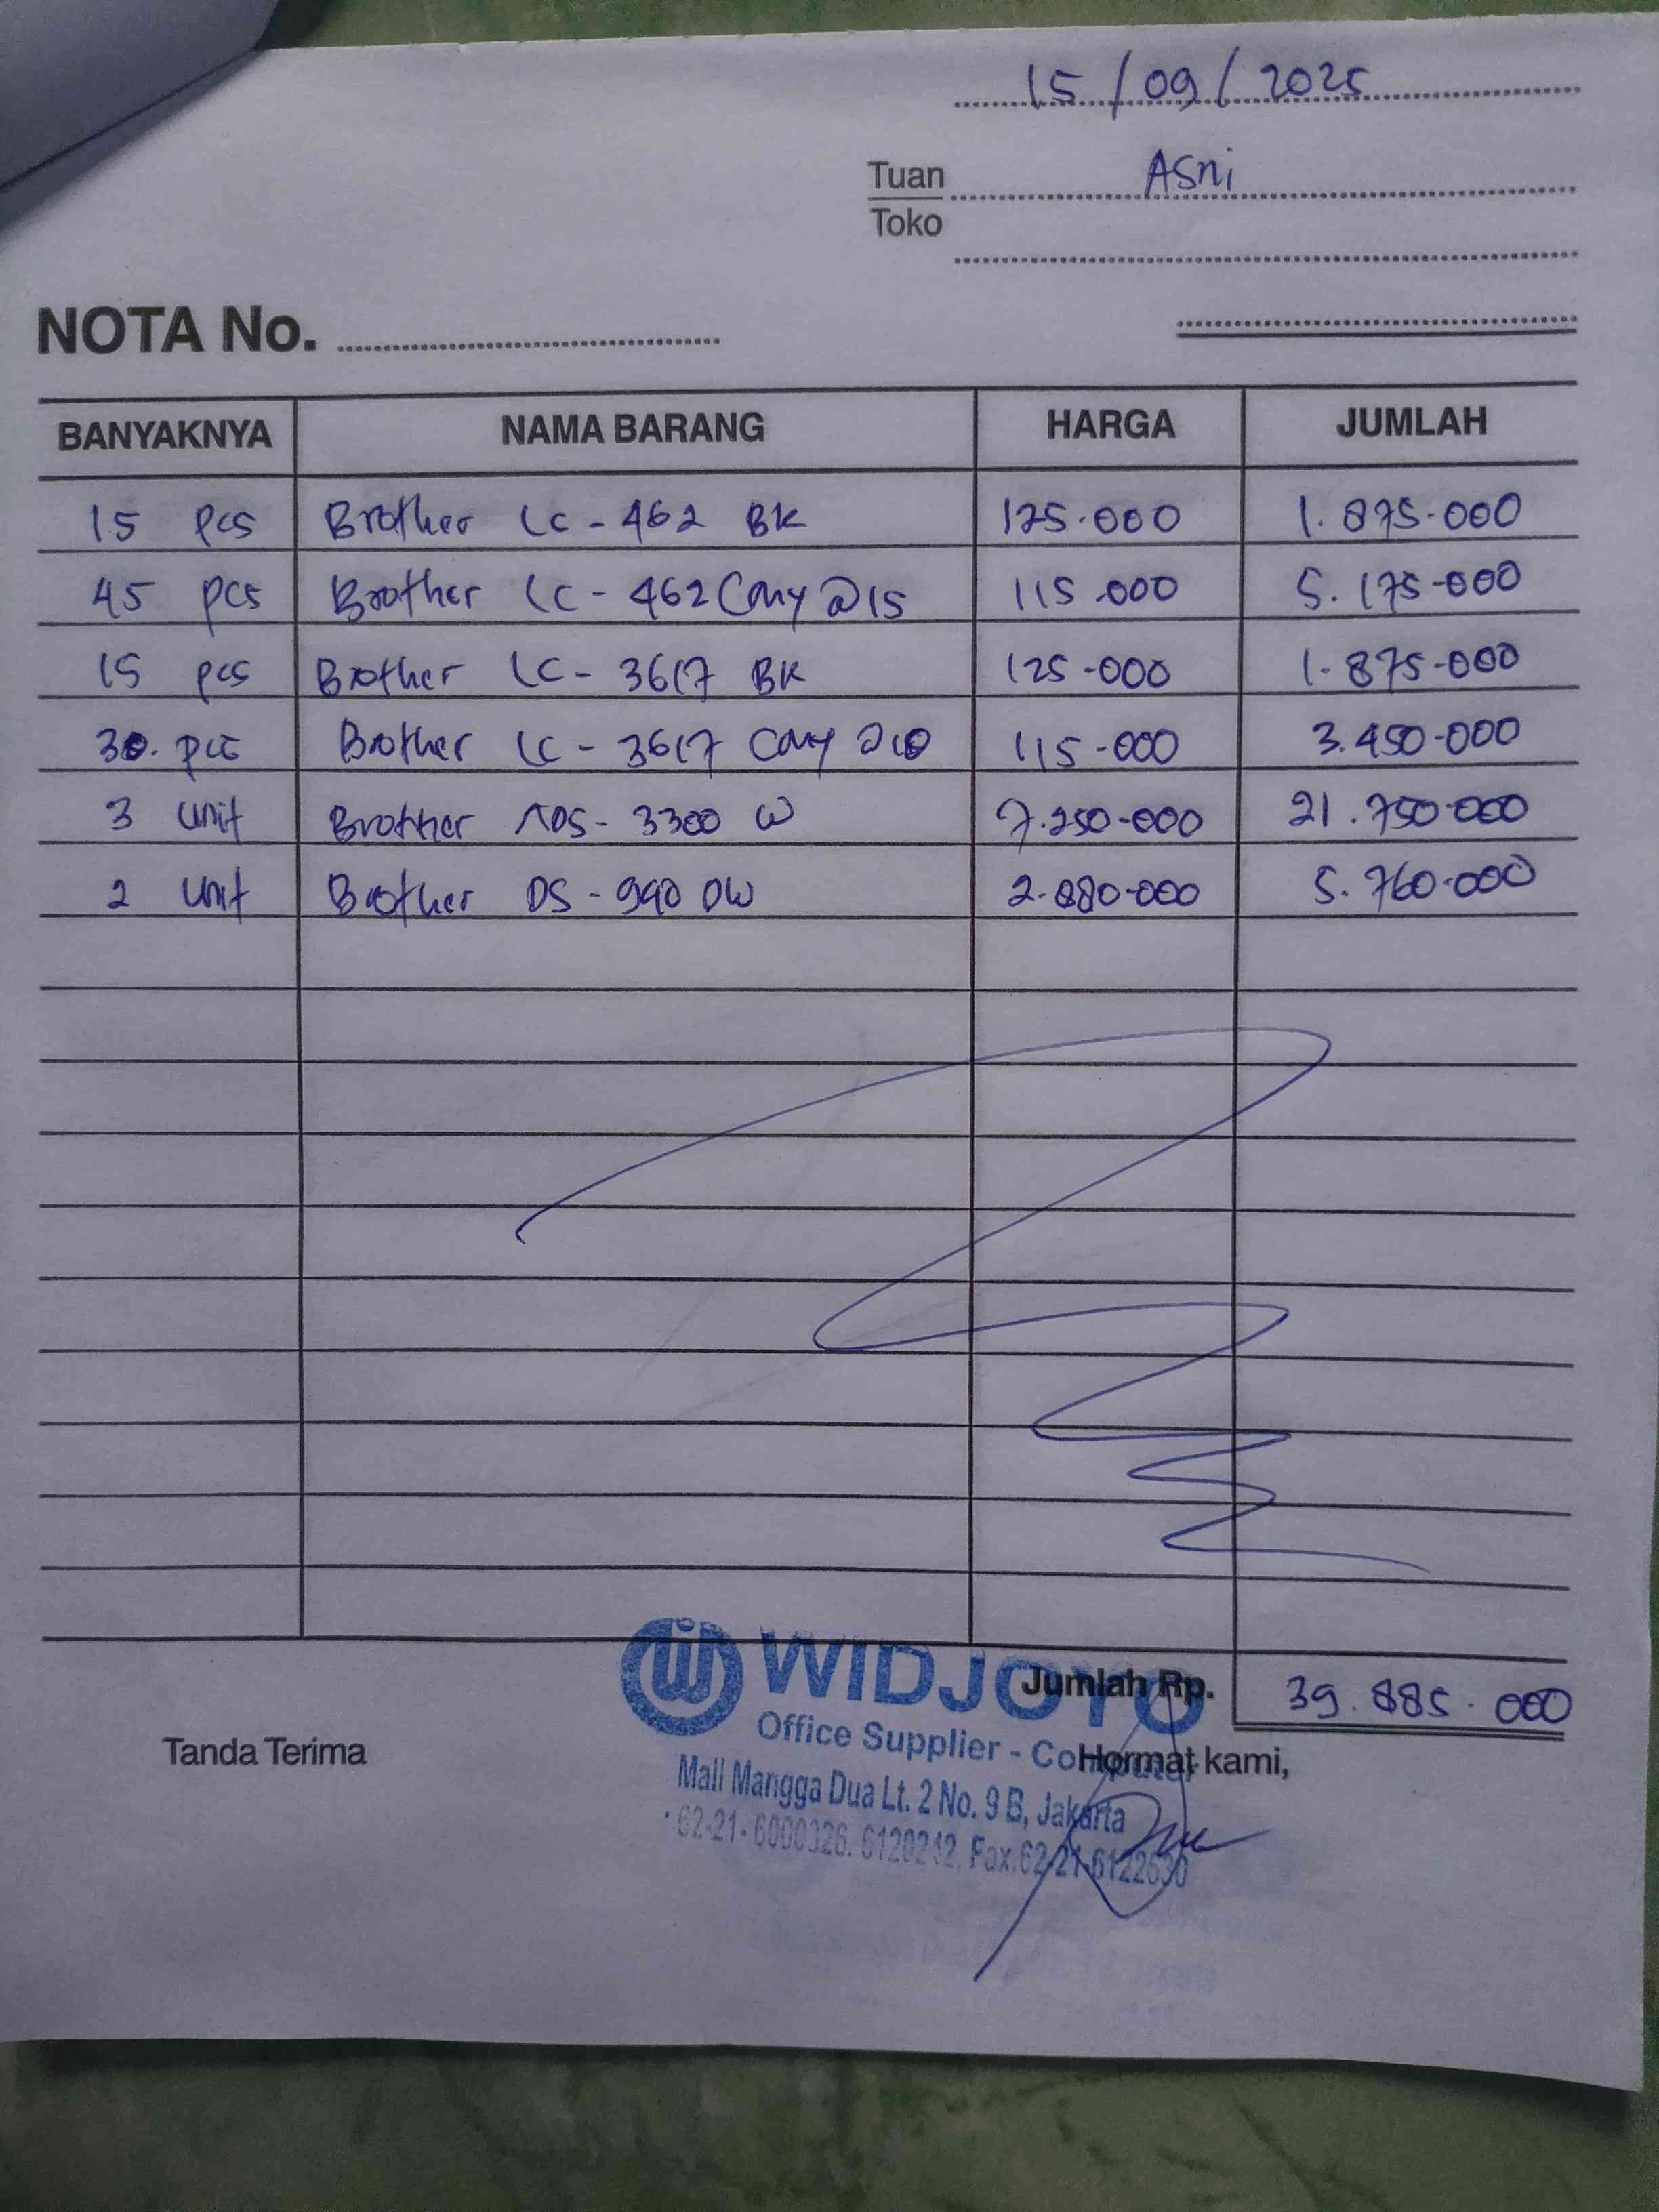 15/09/2025
Tuan Asni
Toko
NOTA No.
BANYAKNYA NAMA BARANG HARGA JUMLAH
15 pcs Brother LC-462 BK 125.000 1.875.000
45 pcs Brother LC-462 CMY @15 115.000 5.175.000
15 pcs Brother LC-3617 BK 125.000 1.875.000
30. pcs Brother LC-3617 CMY @10 115.000 3.450.000
3 unit Brother ADS-3300 W 7.250.000 21.750.000
2 unit Brother DS-940 DW 2.880.000 5.760.000
WIDJOYO
Jumlah Rp. 39.885.000
Office Supplier - Computer
Tanda Terima Hormat kami,
Mall Mangga Dua Lt. 2 No. 9 B, Jakarta
62-21-6000326. 6120242. Fax.62-21-6122630